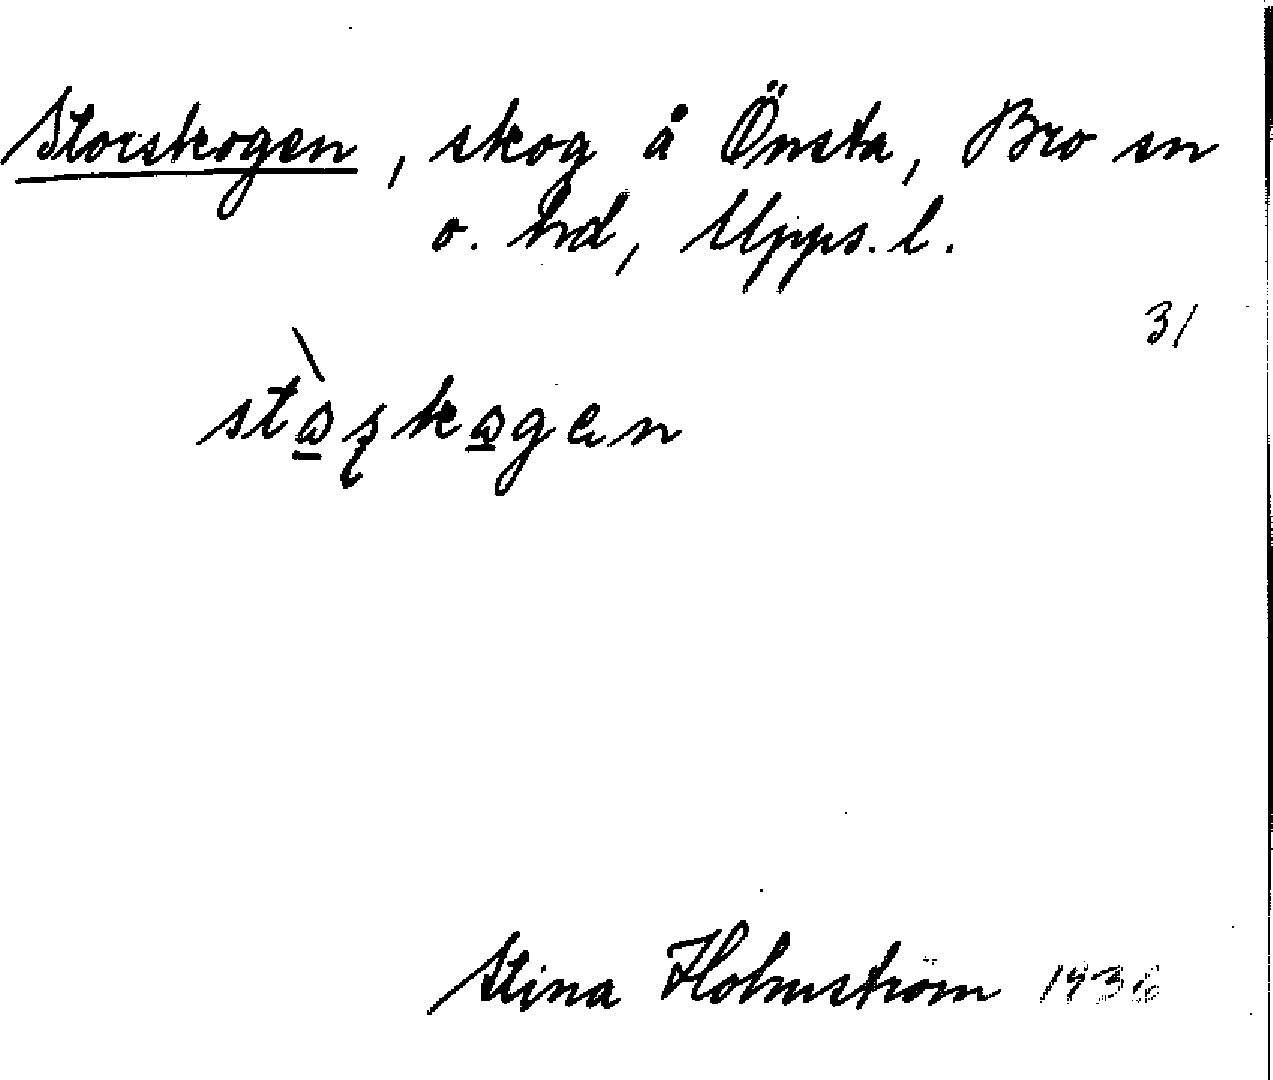 Storskogen, skog å Önsta, Bro sn
o. hd, Upps. l.
31
Stina Holmström 1936